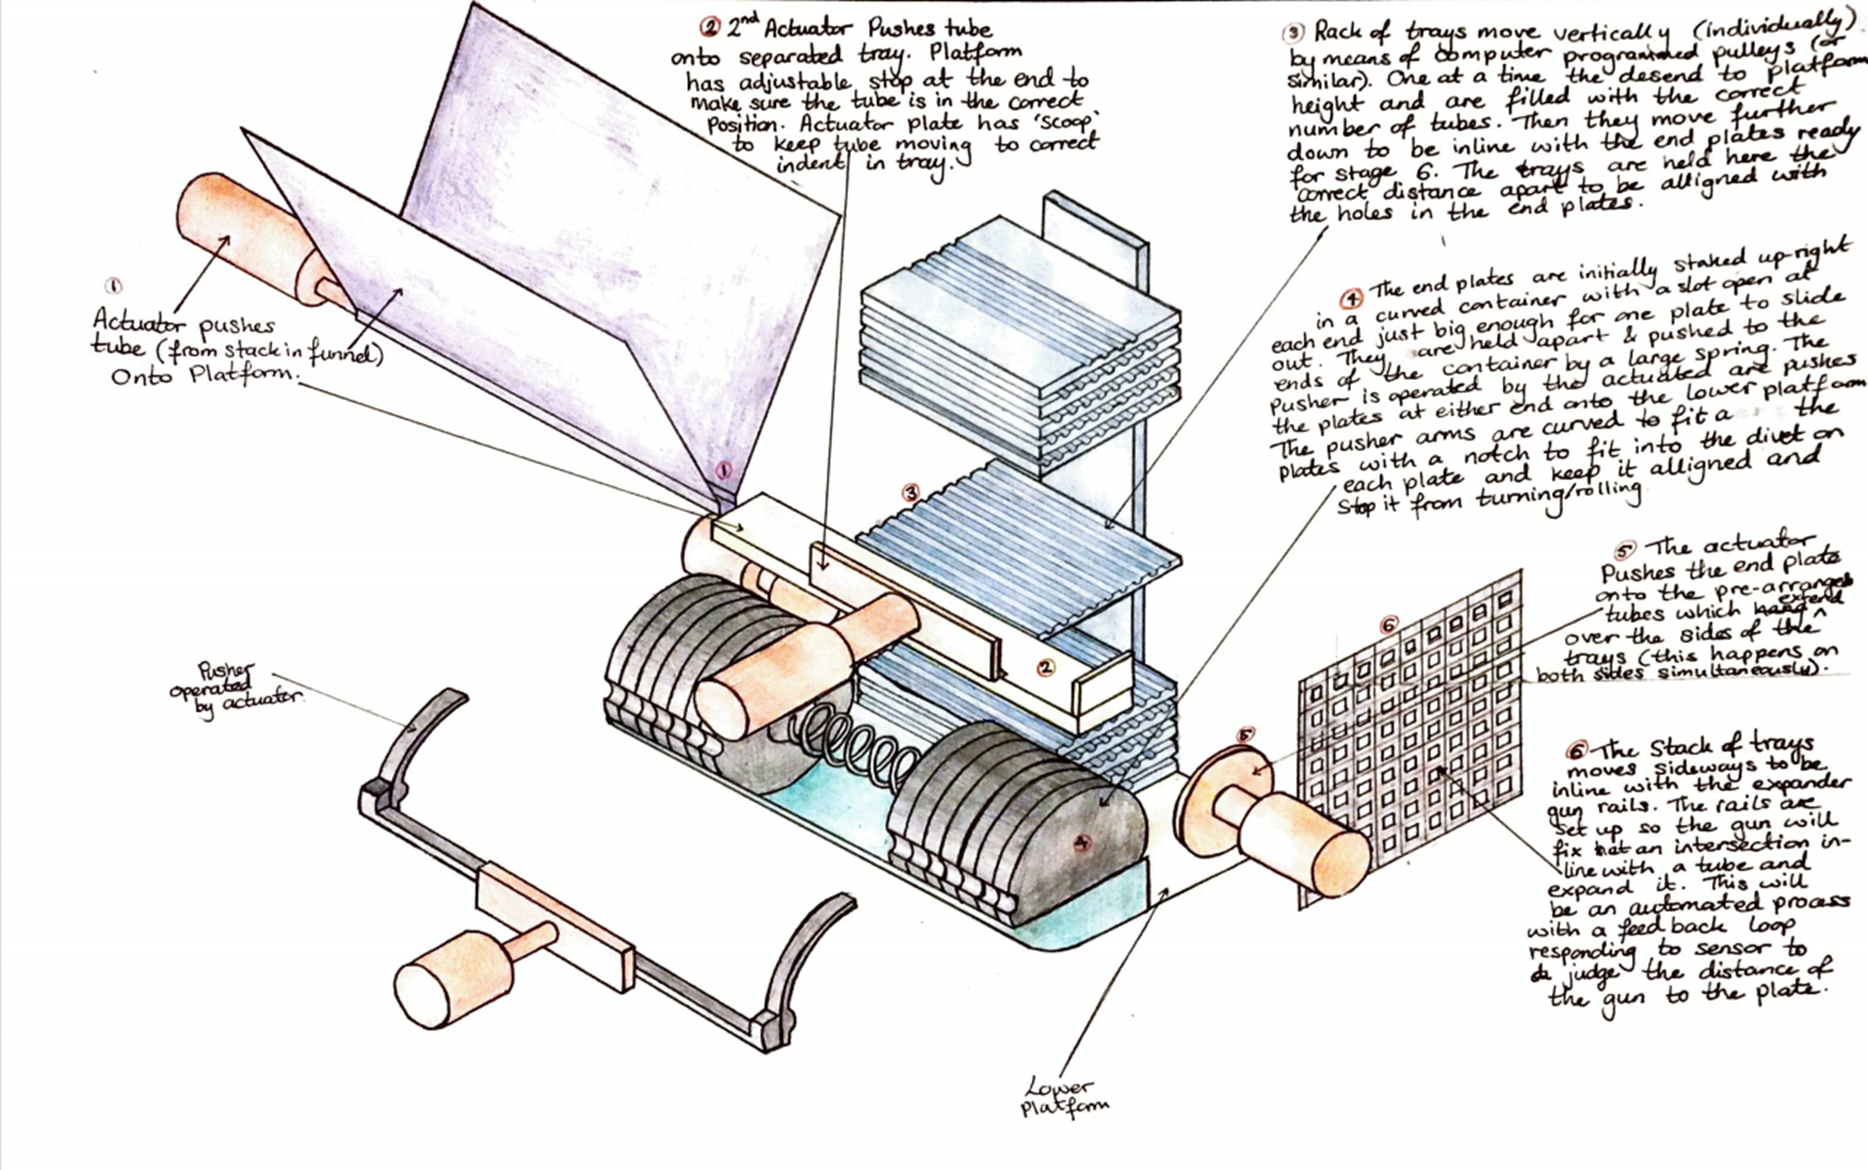 ① Actuator pushes
tube (from stack in funnel)
Onto Platform.
② 2nd Actuator Pushes tube
onto separated tray. Platform
has adjustable stop at the end to
make sure the tube is in the correct
Position. Actuator plate has 'scoop'
to keep tube moving to correct
indent in tray.
③ Rack of trays move vertically (individually)
by means of computer programmed pulleys (or
similar). One at a time the desend to platform
height and are filled with the correct
number of tubes. Then they move further
down to be inline with the end plates ready
for stage 6. The trays are held here the
correct distance apart to be alligned with
the holes in the end plates.
④ The end plates are initially staked up-right
in a curved container with a slot open at
each end just big enough for one plate to slide
out. They are held apart & pushed to the
ends of the container by a large spring. The
Pusher is operated by the actuated are pushes
the plates at either end onto the lower platform
The pusher arms are curved to fit a the
plates with a notch to fit into the divet on
each plate and keep it alligned and
stop it from turning/rolling
⑤ The actuator
Pushes the end plate
onto the pre-arranged
tubes which extend
over the sides of the
trays (this happens on
both sides simultaneously).
⑥ The Stack of trays
moves sideways to be
inline with the expander
gun rails. The rails are
set up so the gun will
fix an intersection in-
line with a tube and
expand it. This will
be an automated process
with a feed back loop
responding to sensor to
judge the distance of
the gun to the plate.
Pusher
operated
by actuator.
Lower
platform
①
②
③
④
⑤
⑥